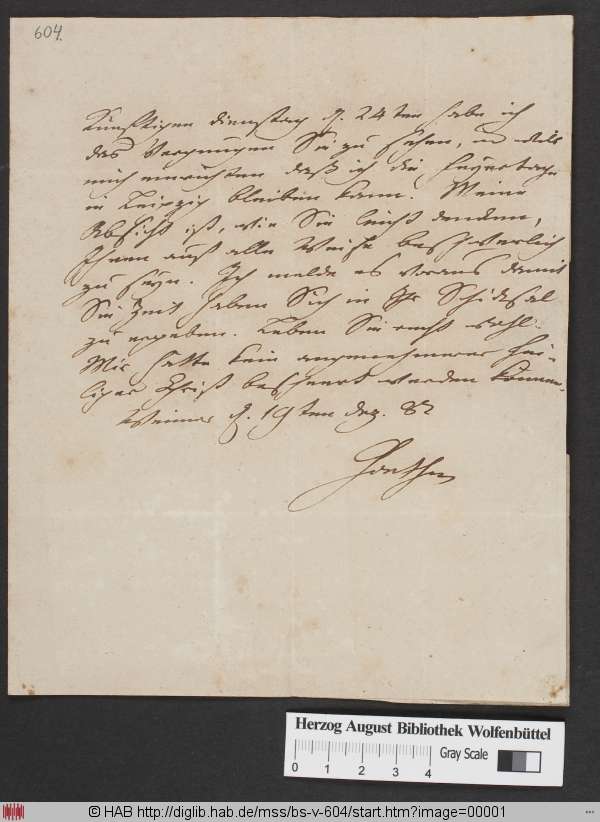 604.
Künftigen Dienstag d. 24ten habe ich
das Vergnügen Sie zu sehen, und will
mich einrichten daß ich die Feyertage
in Leipzig bleiben kann. Meine
Absicht ist, wie Sie leicht dencken,
Ihnen auf alle Weise beschwerlich
zu seyn. Ich melde es voraus damit
Sie Zeit haben Sich in Ihr Schicksal
zu ergeben. Leben Sie recht wohl.
Mir hätte kein angenehmerer hei-
liger Christ bescheert werden können.
Weimar d. 19ten Dez. 82
Goethe
Herzog August Bibliothek Wolfenbüttel
Gray Scale
0 1 2 3 4
© HAB http://diglib.hab.de/mss/bs-v-604/start.htm?image=00001